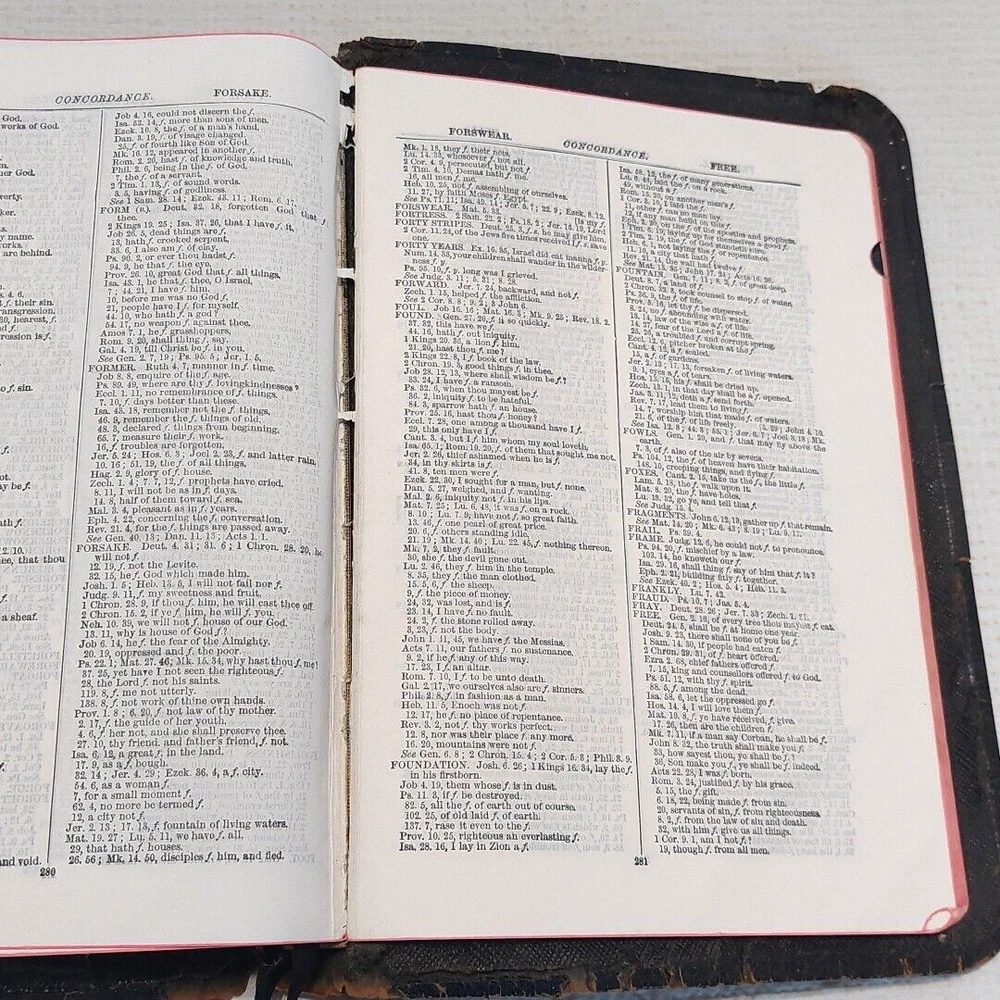 CONCORDANCE. FORSAKE.
God.
works of God.
are behind.
Job 4. 16, could not discern the f.
Isa. 52. 14, f. more than sons of men.
Ezek. 10. 8, the f. of a man's hand.
Dan. 3. 19, f. of visage changed.
25, f. of fourth like Son of God.
Mk. 16. 12, appeared in another f.
Rom. 2. 20, hast f. of knowledge and truth.
Phil. 2. 6, being in the f. of God.
7, the f. of a servant.
2 Tim. 1. 13, f. of sound words.
3. 5, having f. of godliness.
See 1 Sam. 28. 14; Ezek. 43. 11; Rom. 6. 17.
FORM (v.). Deut. 32. 18, forgotten God that f.
thee.
2 Kings 19. 25; Isa. 37. 26, that I have f. it.
Job 26. 5, dead things are f.
13, hath f. crooked serpent.
33. 6, I also am f. of clay.
Ps. 90. 2, or ever thou hadst f.
94. 9, he that f. the eye.
Prov. 26. 10, great God that f. all things.
Isa. 43. 1, he that f. thee, O Israel.
7; 44. 21, I have f. him.
10, before me was no God f.
21, people have I f. for myself.
44. 10, who hath f. a god?
54. 17, no weapon f. against thee.
Amos 7. 1, he f. grasshoppers.
Rom. 9. 20, shall thing f. say.
Gal. 4. 19, till Christ be f. in you.
See Gen. 2. 7, 19; Ps. 95. 5; Jer. 1. 5.
FORMER. Ruth 4. 7, manner in f. time.
Job 8. 8, enquire of the f. age.
Ps. 89. 49, where are thy f. lovingkindnesses?
Eccl. 1. 11, no remembrance of f. things.
7. 10, f. days better than these.
Isa. 43. 18, remember not the f. things.
46. 9, remember the f. things of old.
48. 3, declared f. things from beginning.
65. 7, measure their f. work.
16, f. troubles are forgotten.
Jer. 5. 24; Hos. 6. 3; Joel 2. 23, f. and latter rain.
10. 16; 51. 19, the f. of all things.
Hag. 2. 9, glory of f. house.
Zech. 1. 4; 7. 7, 12, f. prophets have cried.
8. 11, I will not be as in f. days.
14. 8, half of them toward f. sea.
Mal. 3. 4, pleasant as in f. years.
Eph. 4. 22, concerning the f. conversation.
Rev. 21. 4, for the f. things are passed away.
See Gen. 40. 13; Dan. 11. 13; Acts 1. 1.
FORSAKE. Deut. 4. 31; 31. 6; 1 Chron. 28. 20, he
will not f.
12. 19, f. not the Levite.
32. 15, he f. God which made him.
Josh. 1. 5; Heb. 13. 5, I will not fail nor f.
Judg. 9. 11, f. my sweetness and fruit.
1 Chron. 28. 9, if thou f. him, he will cast thee off.
2 Chron. 15. 2, if ye f. him, he will f. you.
Neh. 10. 39, we will not f. house of our God.
13. 11, why is house of God f.?
Job 6. 14, he f. the fear of the Almighty.
20. 19, oppressed and f. the poor.
Ps. 22. 1; Mat. 27. 46; Mk. 15. 34, why hast thou f. me?
37. 25, yet have I not seen the righteous f.
28, the Lord f. not his saints.
119. 8, f. me not utterly.
138. 8, f. not work of thine own hands.
Prov. 1. 8; 6. 20, f. not law of thy mother.
2. 17, f. the guide of her youth.
4. 6, f. her not, and she shall preserve thee.
27. 10, thy friend, and father's friend, f. not.
Isa. 6. 12, a great f. in the land.
17. 9, as a f. bough.
32. 14; Jer. 4. 29; Ezek. 36. 4, a f. city.
54. 6, as a woman f.
7, for a small moment f.
62. 4, no more be termed f.
12, a city not f.
Jer. 2. 13; 17. 13, f. fountain of living waters.
Mat. 19. 27; Lu. 5. 11, we have f. all.
29, that hath f. houses.
26. 56; Mk. 14. 50, disciples f. him, and fled.
280
FORSWEAR. CONCORDANCE. FREE.
Mk. 1. 18, they f. their nets.
Lu. 14. 33, whosoever f. not all.
2 Cor. 4. 9, persecuted, but not f.
2 Tim. 4. 10, Demas hath f. me.
16, all men f. me.
Heb. 10. 25, not f. assembling of ourselves.
11. 27, by faith Moses f. Egypt.
See Ps. 71. 11; Isa. 49. 14; Jer. 5. 7; 22. 9; Ezek. 8. 12.
FORSWEAR. Mat. 5. 33. [is my f.
FORTRESS. 2 Sam. 22. 2; Ps. 18. 2; Jer. 16. 19, Lord
FORTY STRIPES. Deut. 25. 3, f. s. he may give him.
2 Cor. 11. 24, of the Jews five times received I f. s. save
one.
FORTY YEARS. Ex. 16. 35, Israel did eat manna f. y.
Num. 14. 33, your children shall wander in the wilder-
ness f. y.
Ps. 95. 10, f. y. long was I grieved.
See Judg. 3. 11; 5. 31; 8. 28.
FORWARD. Jer. 7. 24, backward, and not f.
Zech. 1. 15, helped f. the affliction.
See 2 Cor. 8. 8; 9. 2; 3 John 6.
FOUL. Job 16. 16; Mat. 16. 3; Mk. 9. 25; Rev. 18. 2.
FOUND. Gen. 27. 20, f. it so quickly.
37. 32, this have we f.
44. 16, hath f. out iniquity.
1 Kings 20. 36, a lion f. him.
21. 20, hast thou f. me?
2 Kings 22. 8, I f. book of the law.
2 Chron. 19. 3, good things f. in thee.
Job 28. 12, 13, where shall wisdom be f.?
33. 24, I have f. a ransom.
Ps. 32. 6, when thou mayest be f.
36. 2, iniquity f. to be hateful.
84. 3, sparrow hath f. an house.
Prov. 25. 16, hast thou f. honey?
Eccl. 7. 28, one among a thousand have I f.
29, this only have I f.
Cant. 3. 4, but I f. him whom my soul loveth.
Isa. 65. 1; Rom. 10. 20, f. of them that sought me not.
Jer. 2. 26, thief ashamed when he is f.
34, in thy skirts is f.
41. 8, ten men were f.
Ezek. 22. 30, I sought for a man, but f. none.
Dan. 5. 27, weighed, and f. wanting.
Mal. 2. 6, iniquity not f. in his lips.
Mat. 7. 25; Lu. 6. 48, it was f. on a rock.
8. 10; Lu. 7. 9, have not f. so great faith.
13. 46, f. one pearl of great price.
20. 6, f. others standing idle.
21. 19; Mk. 14. 40; Lu. 22. 45, f. nothing thereon.
Mk. 7. 2, they f. fault.
30, she f. the devil gone out.
Lu. 2. 46, they f. him in the temple.
8. 35, they f. the man clothed.
15. 5, 6, f. the sheep.
9, f. the piece of money.
24, 32, was lost, and is f.
23. 14, I have f. no fault.
24. 2, f. the stone rolled away.
3, 23, f. not the body.
John 1. 41, 45, we have f. the Messias.
Acts 7. 11, our fathers f. no sustenance.
9. 2, if he f. any of this way.
17. 23, I f. an altar.
Rom. 7. 10, I f. to be unto death.
Gal. 2. 17, we ourselves also are f. sinners.
Phil. 2. 8, f. in fashion as a man.
Heb. 11. 5, Enoch was not f.
12. 17, he f. no place of repentance.
Rev. 3. 2, not f. thy works perfect.
12. 8, nor was their place f. any more.
16. 20, mountains were not f.
See Gen. 6. 8; 2 Chron. 15. 4; 2 Cor. 5. 3; Phil. 3. 9.
FOUNDATION. Josh. 6. 26; 1 Kings 16. 34, lay the f.
in his firstborn.
Job 4. 19, them whose f. is in dust.
Ps. 11. 3, if f. be destroyed.
82. 5, all the f. of earth out of course.
102. 25, of old laid f. of earth.
137. 7, rase it even to the f.
Prov. 10. 25, righteous an everlasting f.
Isa. 28. 16, I lay in Zion a f.
Isa. 58. 12, the f. of many generations.
Lu. 6. 48, laid the f. on a rock.
49, without a f.
Rom. 15. 20, on another man's f.
1 Cor. 3. 10, I laid the f.
11, other f. can no man lay.
12, if any man build on this f.
Eph. 2. 20, on the f. of the apostles and prophets.
1 Tim. 6. 19, laying up for themselves a good f.
2 Tim. 2. 19, the f. of God standeth sure.
Heb. 6. 1, not laying the f. of repentance.
11. 10, a city that hath f.
Rev. 21. 14, the wall had twelve f.
See Mat. 13. 35; John 17. 24; Acts 16. 26.
FOUNTAIN. Gen. 7. 11; 8. 2, f. of great deep.
Deut. 8. 7, a land of f.
2 Chron. 32. 3, took counsel to stop f. of water.
Ps. 36. 9, the f. of life.
Prov. 5. 16, let thy f. be dispersed.
8. 24, no f. abounding with water.
13. 14, law of the wise a f. of life.
14. 27, fear of the Lord a f. of life.
25. 26, a troubled f. and corrupt spring.
Eccl. 12. 6, pitcher broken at the f.
Cant. 4. 12, a f. sealed.
15, a f. of gardens.
Jer. 2. 13; 17. 13, forsaken f. of living waters.
9. 1, eyes a f. of tears.
Hos. 13. 15, his f. shall be dried up.
Zech. 13. 1, in that day shall be a f. opened.
Jas. 3. 11, 12, doth a f. send forth.
Rev. 7. 17, lead them to living f.
14. 7, worship him that made f. of waters.
21. 6, of the f. of life freely. [5. 29; John 4. 10.
See Isa. 12. 3; 44. 3; 55. 1; Jer. 6. 7; Joel 3. 18; Mk.
FOWLS. Gen. 1. 20, and f. that may fly above the
earth.
7. 3, of f. also of the air by sevens.
Ps. 104. 12, the f. of heaven have their habitation.
148. 10, creeping things, and flying f.
FOXES. Cant. 2. 15, take us the f., the little f.
Lam. 5. 18, the f. walk upon it.
Mat. 8. 20, the f. have holes.
Lu. 13. 32, go ye, and tell that f.
See Judg. 15. 4.
FRAGMENTS. John 6. 12, 13, gather up f. that remain.
See Mat. 14. 20; Mk. 6. 43; 8. 19; Lu. 9. 17.
FRAIL. Ps. 39. 4.
FRAME. Judg. 12. 6, he could not f. to pronounce.
Ps. 94. 20, f. mischief by a law.
103. 14, he knoweth our f.
Isa. 29. 16, shall thing f. say of him that f. it?
Eph. 2. 21, building fitly f. together.
See Ezek. 40. 2; Hos. 5. 4; Heb. 11. 3.
FRANKLY. Lu. 7. 42.
FRAUD. Ps. 10. 7; Jas. 5. 4.
FRAY. Deut. 28. 26; Jer. 7. 33; Zech. 1. 21.
FREE. Gen. 2. 16, of every tree thou mayest f. eat.
Deut. 24. 5, shall be f. at home one year.
Josh. 9. 23, there shall none of you be f.
1 Sam. 14. 30, if people had eaten f.
2 Chron. 29. 31, of f. heart offered.
Ezra 2. 68, chief fathers offered f.
7. 15, king and counsellors offered f. to God.
Ps. 51. 12, with thy f. spirit.
88. 5, f. among the dead.
Isa. 58. 6, let the oppressed go f.
Hos. 14. 4, I will love them f.
Mat. 10. 8, f. ye have received, f. give.
17. 26, then are the children f.
Mk. 7. 11, if a man say Corban, he shall be f.
John 8. 32, the truth shall make you f.
33, how sayest thou, ye shall be f.?
36, Son make you f., ye shall be f. indeed.
Acts 22. 28, I was f. born.
Rom. 3. 24, justified f. by his grace.
5. 15, the f. gift.
6. 18, 22, being made f. from sin.
20, servants of sin, f. from righteousness.
8. 2, f. from the law of sin and death.
32, with him f. give us all things.
1 Cor. 9. 1, am I not f.?
19, though f. from all men.
281